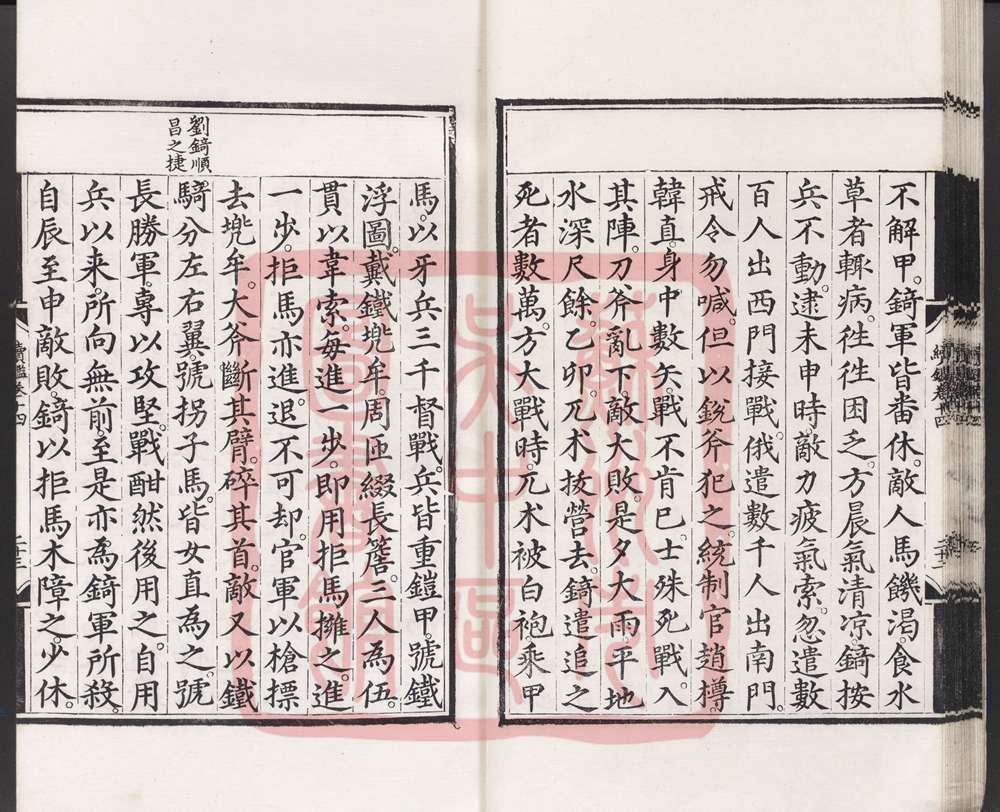 不解甲。錡軍皆畨休。敵人馬饑渴。食水
草者輒病。徃徃困乏。方晨氣清凉。錡按
兵不動。逮未申時。敵力疲氣索。忽遣數
百人出西門接戰。俄遣數千人出南門。
戒令勿喊。但以銳斧犯之。統制官趙樽。
韓直。身中數矢。戰不肯已。士殊死戰。入
其陣。刀斧亂下。敵大敗。是夕大雨。平地
水深尺餘。乙卯。兀术拔營去。錡遣追之。
死者數萬。方大戰時。兀术被白袍。乘甲
劉錡順
昌之捷
馬。以牙兵三千督戰。兵皆重鎧甲。號鐵
浮圖。戴鐵兠牟。周匝綴長簷。三人為伍。
貫以韋索。每進一步。即用拒馬擁之。進
一步。拒馬亦進。退不可却。官軍以槍摽
去兠牟。大斧斷其臂。碎其首。敵又以鐵
騎分左右翼。號拐子馬。皆女直為之。號
長勝軍。專以攻堅。戰酣然後用之。自用
兵以来。所向無前。至是亦為錡軍所殺。
自辰至申。敵敗。錡以拒馬木障之。少休。
續鑑卷十四
二十三
蘇州市
吴中區
圖書館